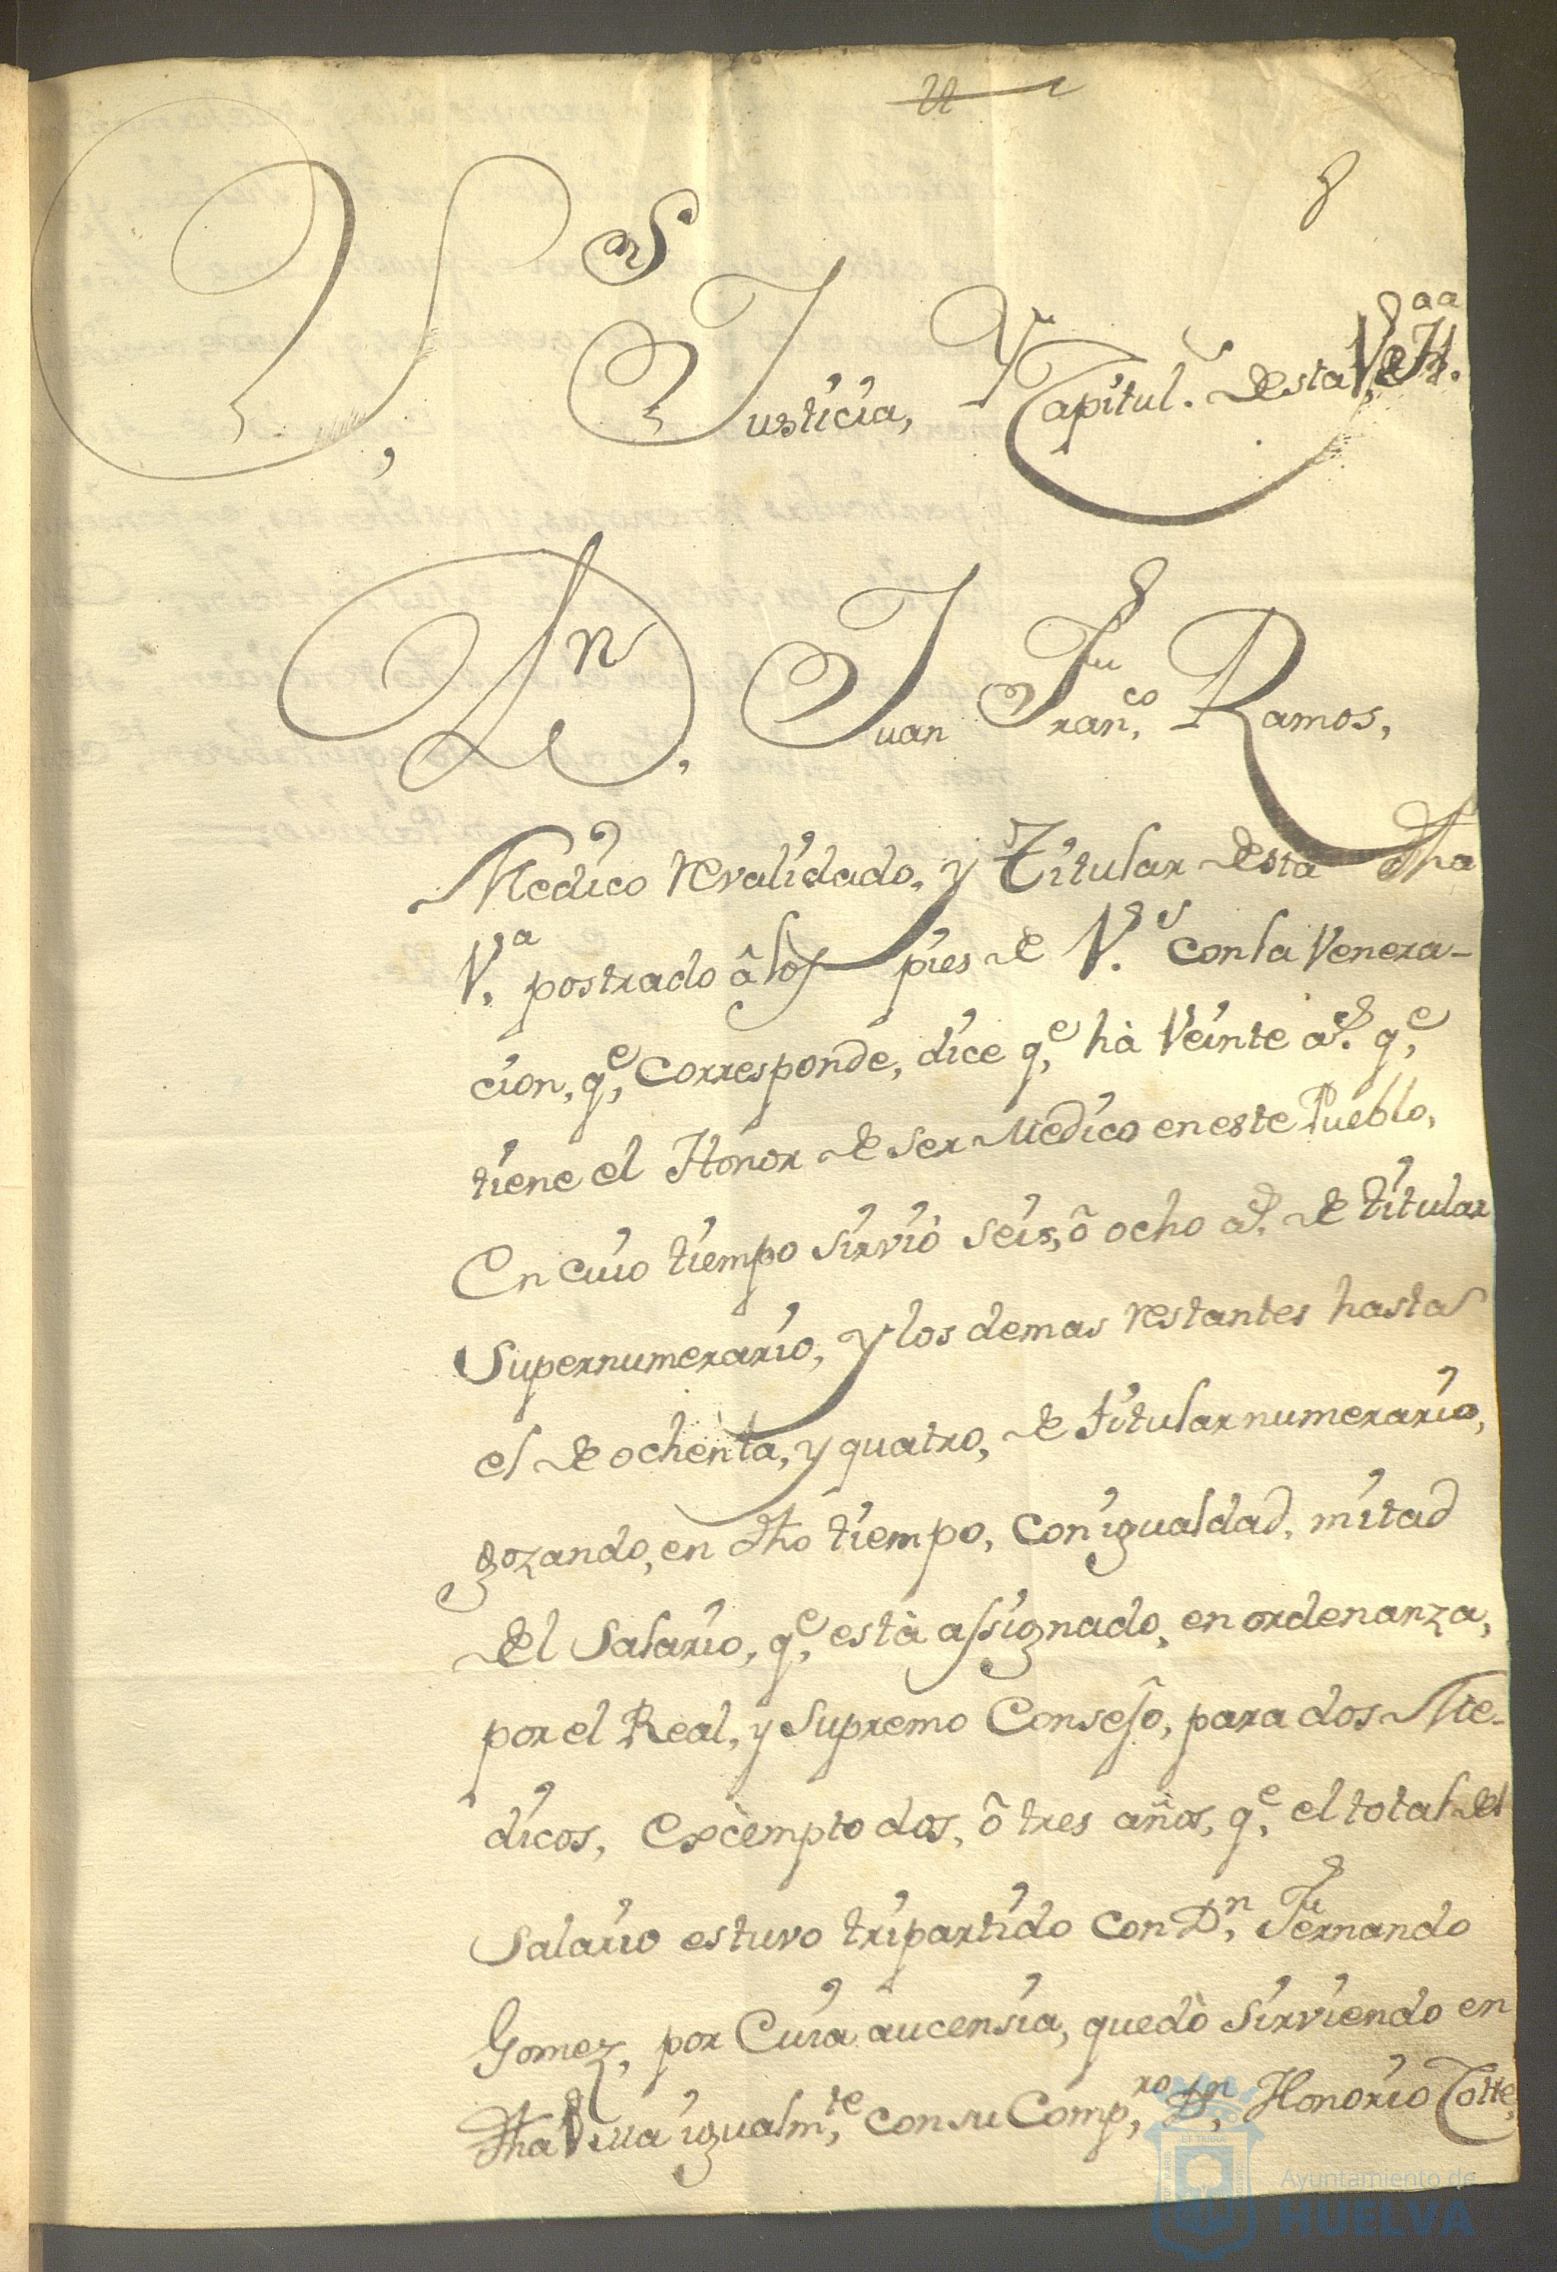 S.res
Justicia, Y Capitul.s desta V.a de H.a
D.n Juan Fran.co Ramos,
Medico revalidado, y Titular desta dha
V.a postrado â los pies de V.s con la Venera-
cion, q.e corresponde, dice q.e hà Veinte a.s q.e
tiene el Honor de ser Medico en este Pueblo,
En cuio tiempo sirviò seis, ô ocho a.s de titular
Supernumerario, y los demas restantes hasta
el de ochenta, y quatro, de titular numerario,
gozando, en dho tiempo, con igualdad, mitad
del Salario, q.e està assignado, en ordenanza,
por el Real, y Supremo Consejo, para dos Me-
dicos, excèmpto dos, ô tres años, q.e el total del
Salario estuvo tripartido con D.n Fernando
Gomez, por Cuia aucensia, quedò sirviendo en
dha Villa igualm.te con su Comp.ro D.n Honorio
Ayuntamiento de
HUELVA